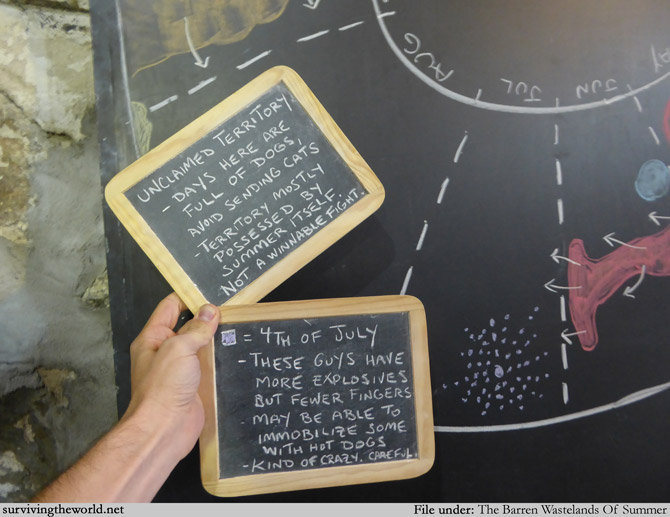 AUG
JUL
JUN
AY
UNCLAIMED TERRITORY
- DAYS HERE ARE
FULL OF DOGS,
AVOID SENDING CATS
- TERRITORY MOSTLY
POSSESSED BY
SUMMER ITSELF.
NOT A WINNABLE FIGHT.
= 4TH OF JULY
- THESE GUYS HAVE
MORE EXPLOSIVES
BUT FEWER FINGERS
- MAY BE ABLE TO
IMMOBILIZE SOME
WITH HOT DOGS
- KIND OF CRAZY. CAREFUL.
survivingtheworld.net
File under: The Barren Wastelands Of Summer